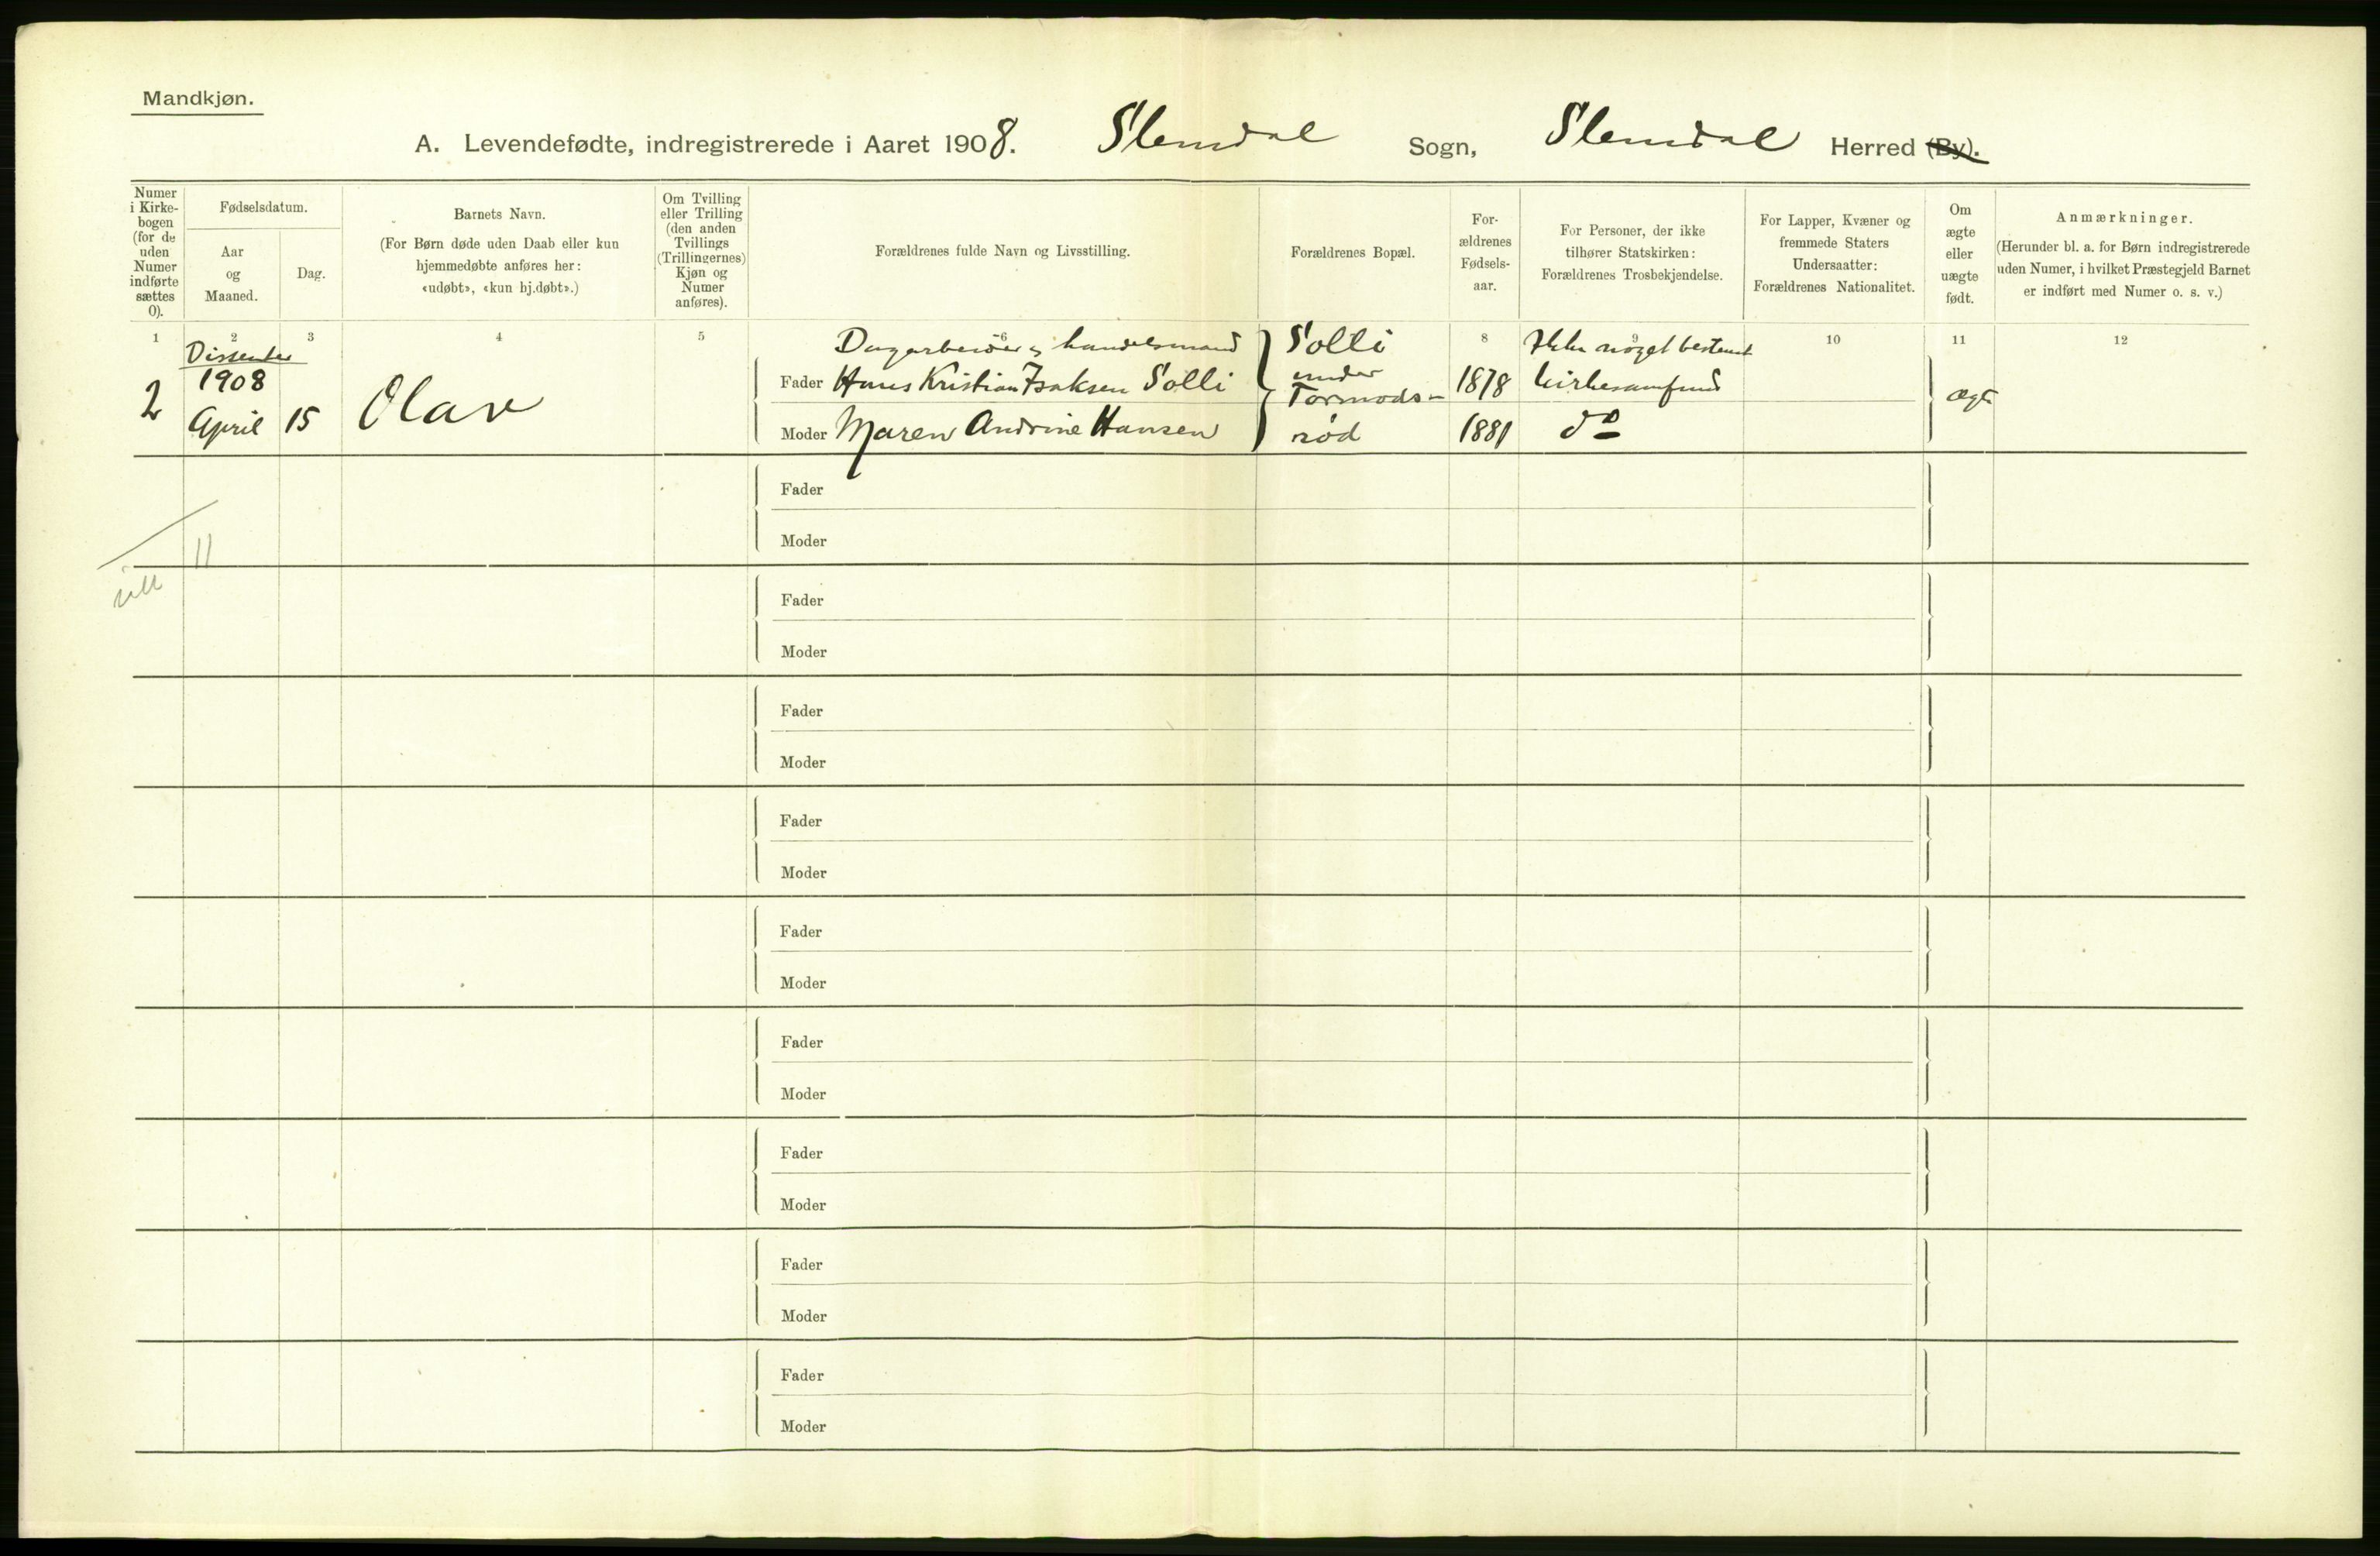 Mandkjøn.
A. Levendefødte, indregistrerede i Aaret 1908. Slemdal Sogn, Slemdal Herred (By).
Numer
i Kirke-
bogen
(for de
uden
Numer
indførte
sættes
0).
Fødselsdatum.
Aar
og
Maaned.
Dag.
Barnets Navn.
(For Børn døde uden Daab eller kun
hjemmedøbte anføres her:
«udøbt», «kun hj.døbt».)
Om Tvilling
eller Trilling
(den anden
Tvillings
(Trillingernes)
Kjøn og
Numer
anføres).
Forældrenes fulde Navn og Livsstilling.
Forældrenes Bopæl.
For-
ældrenes
Fødsels-
aar.
For Personer, der ikke
tilhører Statskirken:
Forældrenes Trosbekjendelse.
For Lapper, Kvæner og
fremmede Staters
Undersaatter:
Forældrenes Nationalitet.
Om
ægte
eller
uægte
født.
Anmærkninger.
(Herunder bl. a. for Børn indregistrerede
uden Numer, i hvilket Præstegjeld Barnet
er indført med Numer o. s. v.)
1 2 3 4 5 6 8 9 10 11 12
Dissenter
2
1908
April 15
Olav
Dagarbeider og handelsmand
Fader Hans Kristian Isaksen Solli
Moder Maren Andrine Hansen
Solli
under
Tormods-
rød
1878
1881
Ikke noget bestemt
kirkesamfund
do
ægte
Fader
Moder
11
Fader
Moder
Fader
Moder
Fader
Moder
Fader
Moder
Fader
Moder
Fader
Moder
Fader
Moder
Fader
Moder